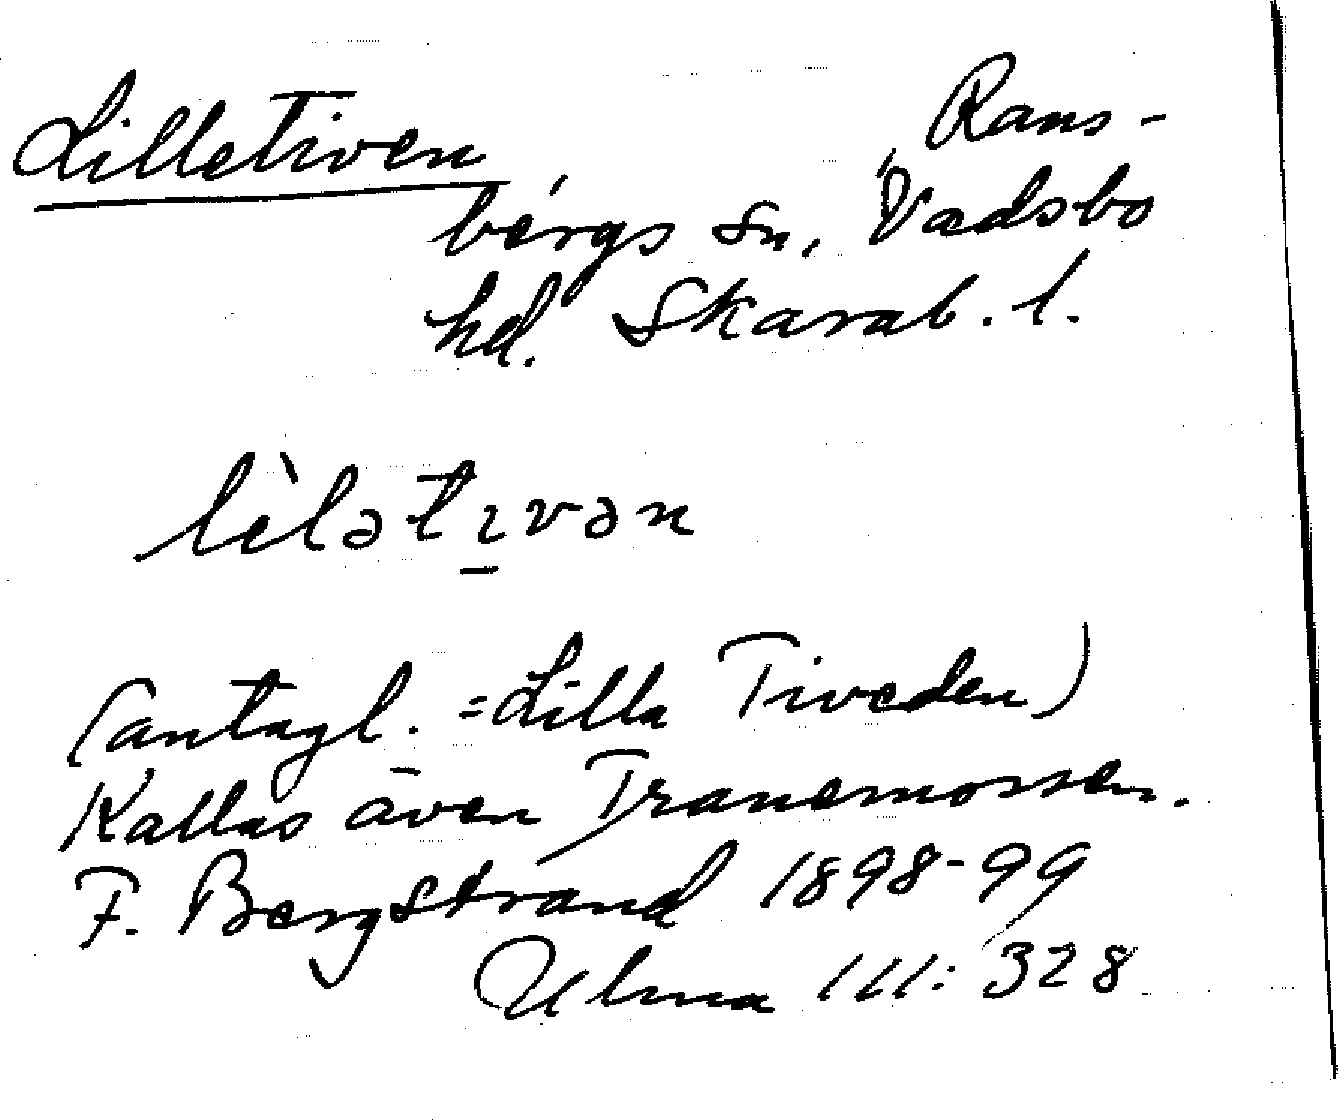 Lilletiven Rans-
bergs sn, Vadsbo
hd. Skarab. l.
lìlətɪ̱vən
(antagl. = Lilla Tiveden)
Kallas även Tranemossen.
F. Bergstrand 1898-99
Ulma 111: 328